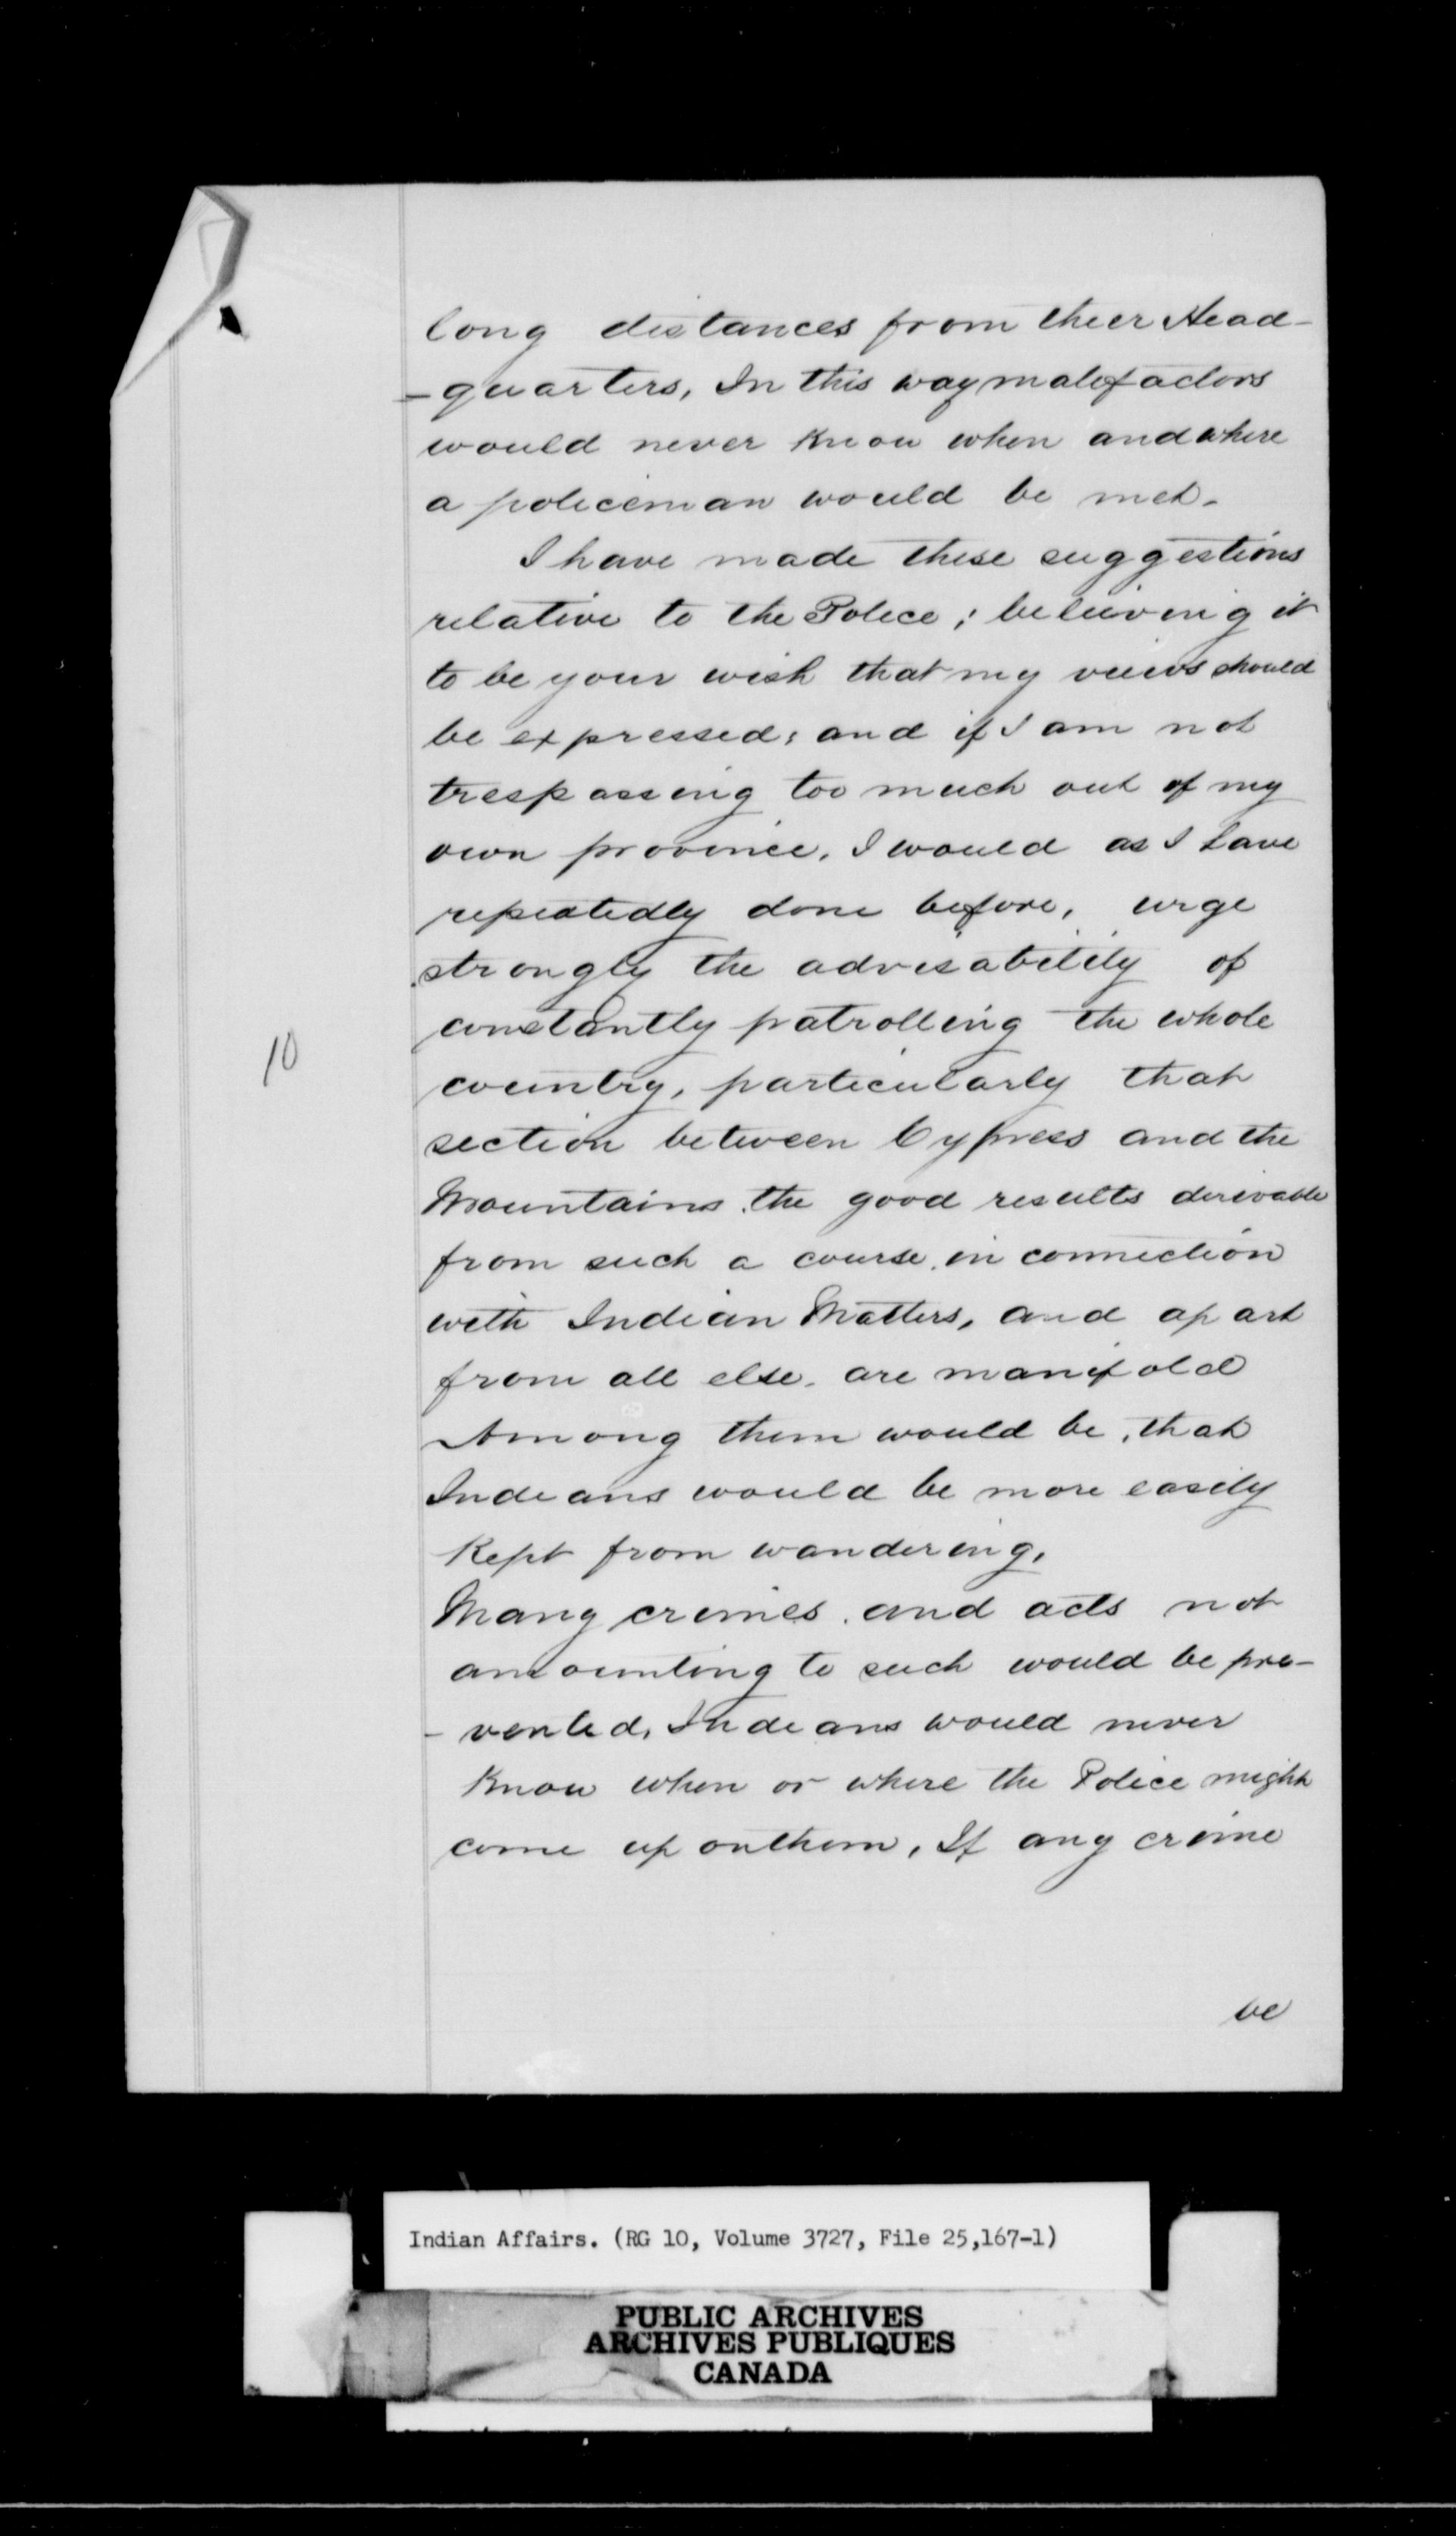 long distances from their Head-
-quarters, In this way malefactors
would never know when and where
a policeman would be met.
I have made these suggestions
relative to the Police; believing it
to be your wish that my views should
be expressed; and if I am not
trespassing too much out of my
own province, I would as I have
repeatedly done before, urge
strongly the advisability of
constantly patrolling the whole
10
country, particularly that
section between Cypress and the
Mountains. the good results derivable
from such a course. in connection
with Indian Matters, and apart
from all else. are manifold
Among them would be, that
Indians would be more easily
Kept from wandering,
Many crimes. and acts not
amounting to such would be pre-
- vented, Indians would never
Know when or where the Police might
come up on them, If any crime
be
Indian Affairs. (RG 10, Volume 3727, File 25,167-1)
PUBLIC ARCHIVES
ARCHIVES PUBLIQUES
CANADA